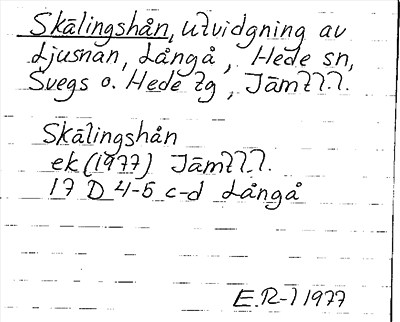 Skålingshån, utvidgning av
Ljusnan, Långå, Hede sn,
Svegs o. Hede tg, Jämtl.l.
Skålingshån
ek (1977) Jämtl.l.
17 D 4-5 c-d Långå
E.R-l 1977